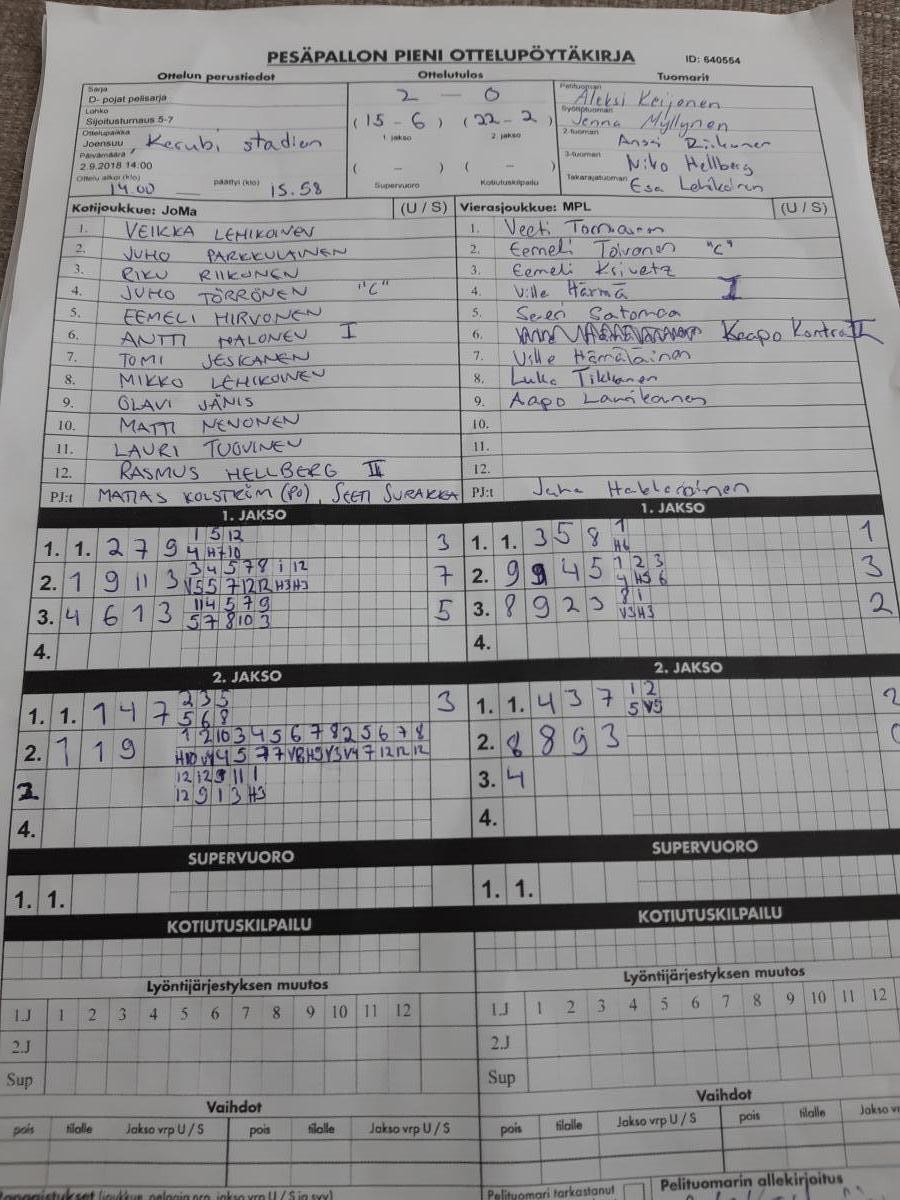 PESÄPALLON PIENI OTTELUPÖYTÄKIRJA ID: 640554
Ottelun perustiedot Ottelutulos Tuomarit
Sarja
D- pojat pelisarja
Lohko
Sijoitusturnaus 5-7
Ottelupaikka
Joensuu, Kerubi stadion
Päivämäärä
2.9.2018 14:00
Ottelu alkoi (klo) 14.00 päättyi (klo) 15.58
2 — 0
(15 - 6) (22 - 2)
1. jakso 2. jakso
( - ) ( - )
Supervuoro Kotiutuskilpailu
Pelituomari Aleksi Keijonen
Syöttötuomari Jenna Myllynen
2-tuomari Anssi Riikonen
3-tuomari Niko Hellberg
Takarajatuomari Esa Lehikoinen
Kotijoukkue: JoMa (U / S)
1. VEIKKA LEHIKOINEN
2. JUHO PARKKULAINEN
3. RIKU RIIKONEN
4. JUHO TÖRRÖNEN "C"
5. EEMELI HIRVONEN
6. ANTTI MALONEN I
7. TOMI JESKANEN
8. MIKKO LEHIKOINEN
9. OLAVI JÄNIS
10. MATTI NENONEN
11. LAURI TUOVINEN
12. RASMUS HELLBERG II
PJ:t MATIAS KOLSTRÖM (PO), SEETI SURAKKA
Vierasjoukkue: MPL (U / S)
1. Veeti
2. Eemeli Toivanen "C"
3. Eemeli Krivetz
4. Ville Härmä I
5. Satomaa
6. Kaapo Kontra II
7. Ville Hämäläinen
8. Luka Tikkanen
9. Aapo
10.
11.
12.
PJ:t Juha
1. JAKSO
1. 1. 2 7 9 1 5 12 3
4 H7 10
2. 1 9 11 3 3 4 5 7 8 1 12 7
V5 5 7 12 12 H3 H3
3. 4 6 1 3 11 4 5 7 9 5
5 7 8 10 3
4.
1. JAKSO
1. 1. 3 5 8 1 1
H6
2. 9 9 4 5 1 2 3 3
4 H5 6
3. 8 9 2 3 8 1 2
V3 H3
4.
2. JAKSO
1. 1. 1 4 7 2 3 5 3
5 6 8
2. 1 1 9 1 2 10 3 4 5 6 7 8 2 5 6 7 8
H10 V4 4 5 7 7 V8 H9 V3 V4 7 12 12 12
12 12 9 11 1
12 9 1 3 H3
4.
2. JAKSO
1. 1. 4 3 7 1 2 2
5 V5
2. 8 8 9 3 0
3. 4
4.
SUPERVUORO
1. 1.
SUPERVUORO
1. 1.
KOTIUTUSKILPAILU
KOTIUTUSKILPAILU
Lyöntijärjestyksen muutos
1.J 1 2 3 4 5 6 7 8 9 10 11 12
2.J
Sup
Lyöntijärjestyksen muutos
1.J 1 2 3 4 5 6 7 8 9 10 11 12
2.J
Sup
Vaihdot
pois tilalle Jakso vrp U / S pois tilalle Jakso vrp U / S
Vaihdot
pois tilalle Jakso vrp U / S pois tilalle
Pelituomari tarkastanut
Pelituomarin allekirjoitus